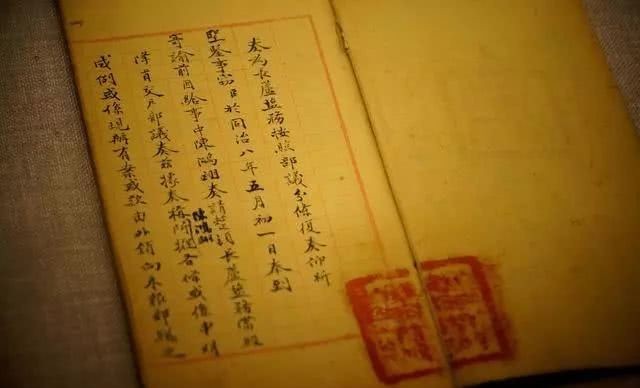 奏為長蘆塩務按照部議分條復奏仰祈
聖鑒事竊臣於同治八年五月初一日奉到
寄諭前因給事中陳鴻翊奏請整頓長蘆塩務當經
降旨交戶部議奏茲據奏稱陳鴻翊所擬各條或係申明
成例或係現辦有案或款由外銷向未報部